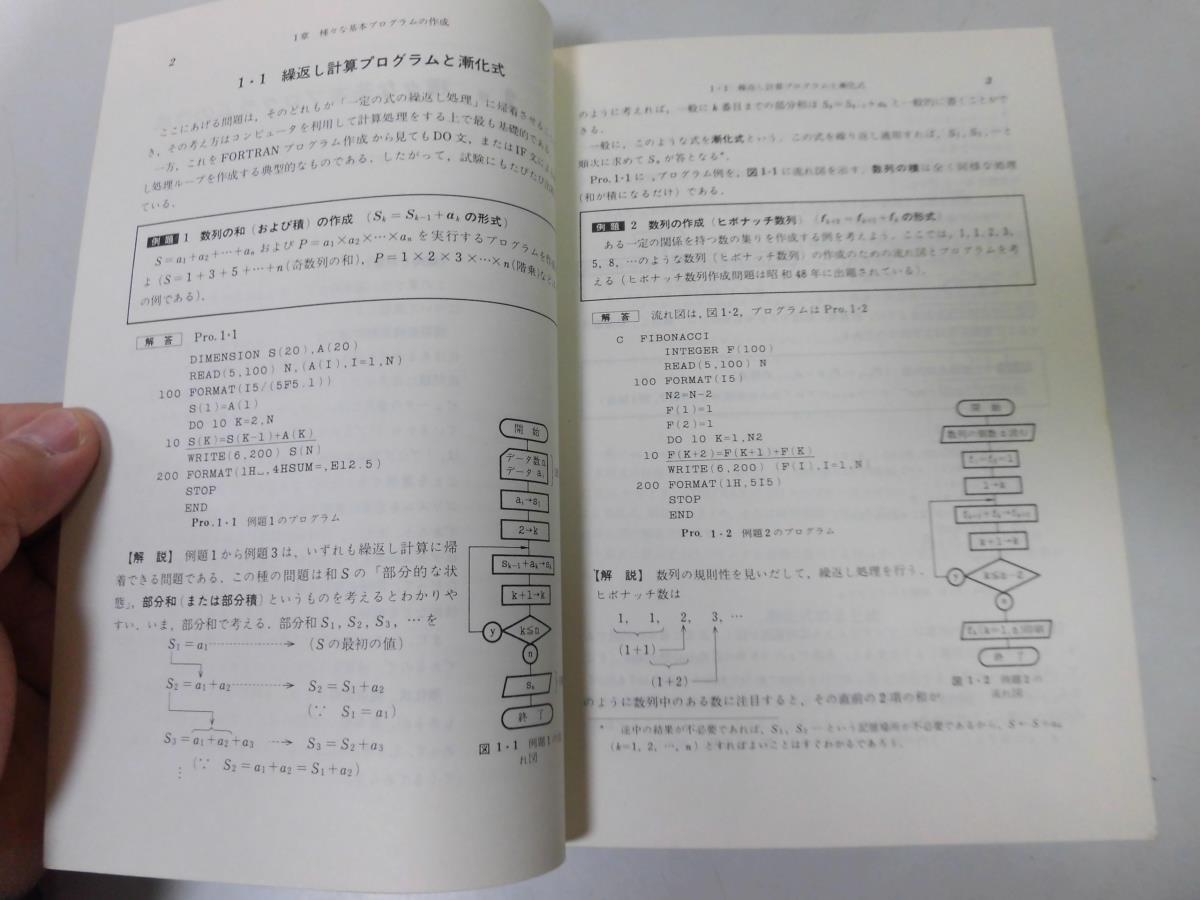 2
1章 種々な基本プログラムの作成
1・1 繰返し計算プログラムと漸化式
ここにあげる問題は，そのどれもが「一定の式の繰返し処理」に帰着させる
き，その考え方はコンピュータを利用して計算処理をする上で最も基礎的である
一方，これをFORTRANプログラム作成から見てもDO文，またはIF文による
し処理ループを作成する典型的なものである．したがって，試験にもたびたび出
ている．
例題 1 数列の和（および積）の作成 （Sk＝Sk-1＋akの形式）
S＝a1＋a2＋…＋an および P＝a1×a2×…×an を実行するプログラムを作
よ（S＝1＋3＋5＋…＋n（奇数列の和），P＝1×2×3×…×n（階乗）など
の例である）．
解答 Pro.1・1
DIMENSION S(20),A(20)
READ(5,100) N,(A(I),I=1,N)
100 FORMAT(I5/(5F5.1))
S(1)=A(1)
DO 10 K=2,N
10 S(K)=S(K-1)+A(K)
WRITE(6,200) S(N)
200 FORMAT(1H␣,4HSUM=,E12.5)
STOP
END
Pro.1・1 例題1のプログラム
【解 説】 例題1から例題3は，いずれも繰返し計算に帰
着できる問題である．この種の問題は和Sの「部分的な状
態」，部分和（または部分積）というものを考えるとわかりや
すい．いま，部分和で考える．部分和S1，S2，S3，…を
S1＝a1 （Sの最初の値）
S2＝a1＋a2 S2＝S1＋a2
（∵ S1＝a1）
S3＝a1＋a2＋a3 S3＝S2＋a3
⋮ （∵ S2＝a1＋a2＝S1＋a2）
開始
データ数n
データ ai
a1→s1
2→k
sk-1＋ak→sk
k＋1→k
k≦n
y
n
終了
図1・1 例題1の
れ図
1・1 繰返し計算プログラムと漸化式
3
のように考えれば，一般にk番目までの部分和はSk＝Sk-1＋akと一般的に書くことがで
きる．
一般に，このような式を漸化式という．この式を繰り返し適用すれば，S1，S2，…と
順次に求めてSnが答となる*．
Pro.1・1に，プログラム例を，図1・1に流れ図を示す．数列の積は全く同様な処理
（和が積になるだけ）である．
例題 2 数列の作成（ヒボナッチ数列） （fk+2＝fk+1＋fkの形式）
ある一定の関係を持つ数の集りを作成する例を考えよう．ここでは，1，1，2，3，
5，8，…のような数列（ヒボナッチ数列）の作成のための流れ図とプログラムを考
える（ヒボナッチ数列作成問題は昭和48年に出題されている）．
解答 流れ図は，図1・2，プログラムはPro.1・2
C FIBONACCI
INTEGER F(100)
READ(5,100) N
100 FORMAT(I5)
N2=N-2
F(1)=1
F(2)=1
DO 10 K=1,N2
10 F(K+2)=F(K+1)+F(K)
WRITE(6,200) (F(I),I=1,N)
200 FORMAT(1H,5I5)
STOP
END
Pro. 1・2 例題2のプログラム
【解 説】 数列の規則性を見いだして，繰返し処理を行う．
ヒボナッチ数は
1， 1， 2， 3，…
（1＋1）
（1＋2）
のように数列中のある数に注目すると，その直前の2項の和が
開始
数列の個数nを読む
f1＝f2＝1
1→k
fk+1＋fk→fk+2
k＋1→k
k≦n−2
y
n
終了
図1・2 例題2の
流れ図
* 途中の結果が不必要であれば，S1，S2…という記憶場所が不必要であるから，S←S＋ak
（k＝1，2，…，n）とすればよいことはすぐわかるであろう．